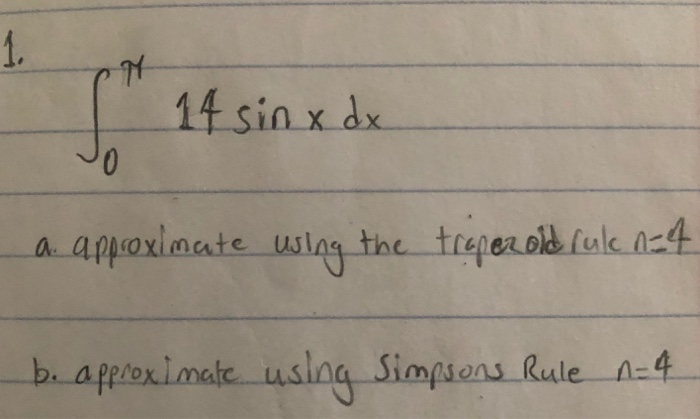 1.
∫₀^π 14 sin x dx
a. approximate using the trapezoid rule n=4
b. approximate using Simpsons Rule n=4